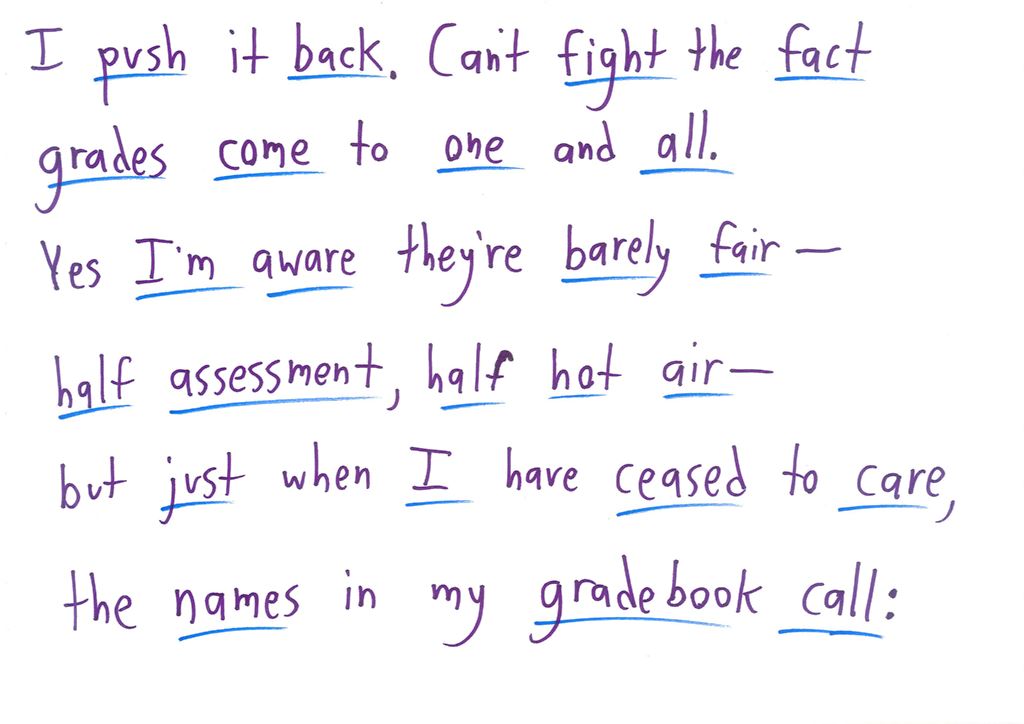 I push it back. Can't fight the fact
grades come to one and all.
Yes I'm aware they're barely fair—
half assessment, half hot air—
but just when I have ceased to care,
the names in my gradebook call: